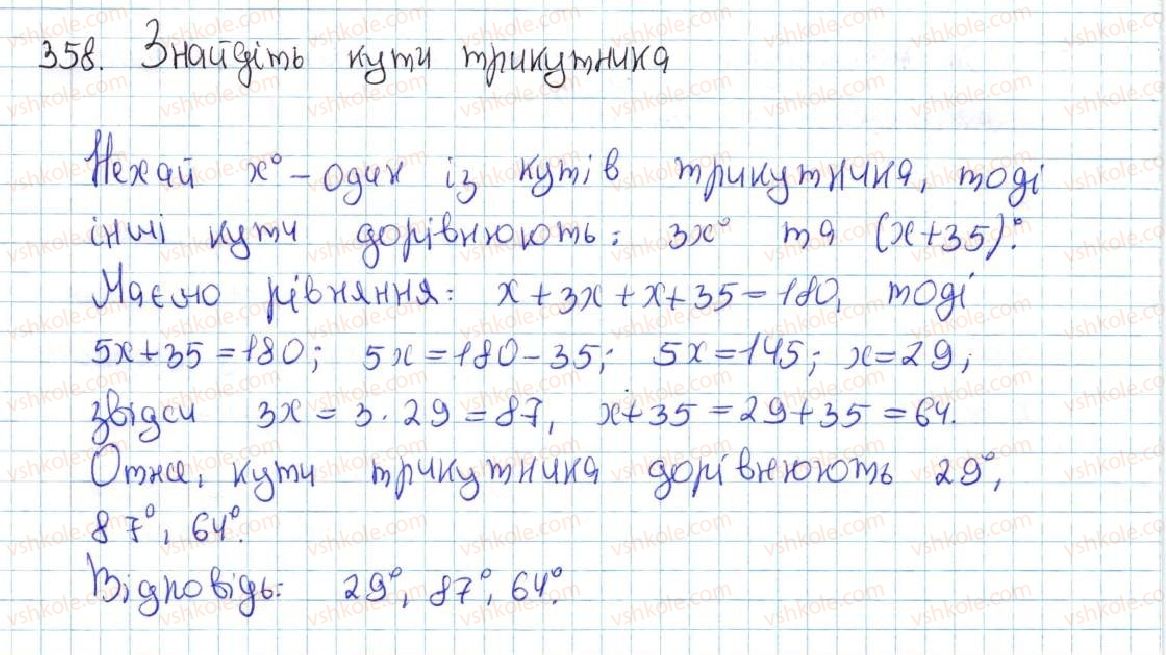 358. Знайдіть кути трикутника
Нехай x° – один із кутів трикутника, тоді
інші кути дорівнюють: 3x° та (x+35)°.
Маємо рівняння: x+3x+x+35=180, тоді
5x+35=180; 5x=180-35; 5x=145; x=29;
звідси 3x=3·29=87, x+35=29+35=64.
Отже, кути трикутника дорівнюють 29°,
87°, 64°.
Відповідь: 29°, 87°, 64°.